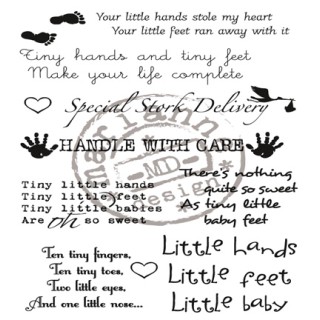 Your little hands stole my heart
Your little feet ran away with it
Tiny hands and tiny feet
Make your life complete
Special Stork Delivery
HANDLE WITH CARE
Tiny little hands
Tiny little feet
Tiny little babies
Are oh so sweet
There's nothing
quite so sweet
As tiny little
baby feet
Ten tiny fingers,
Ten tiny toes,
Two little eyes,
And one little nose...
Little hands
Little feet
Little baby
mariann
MD
design